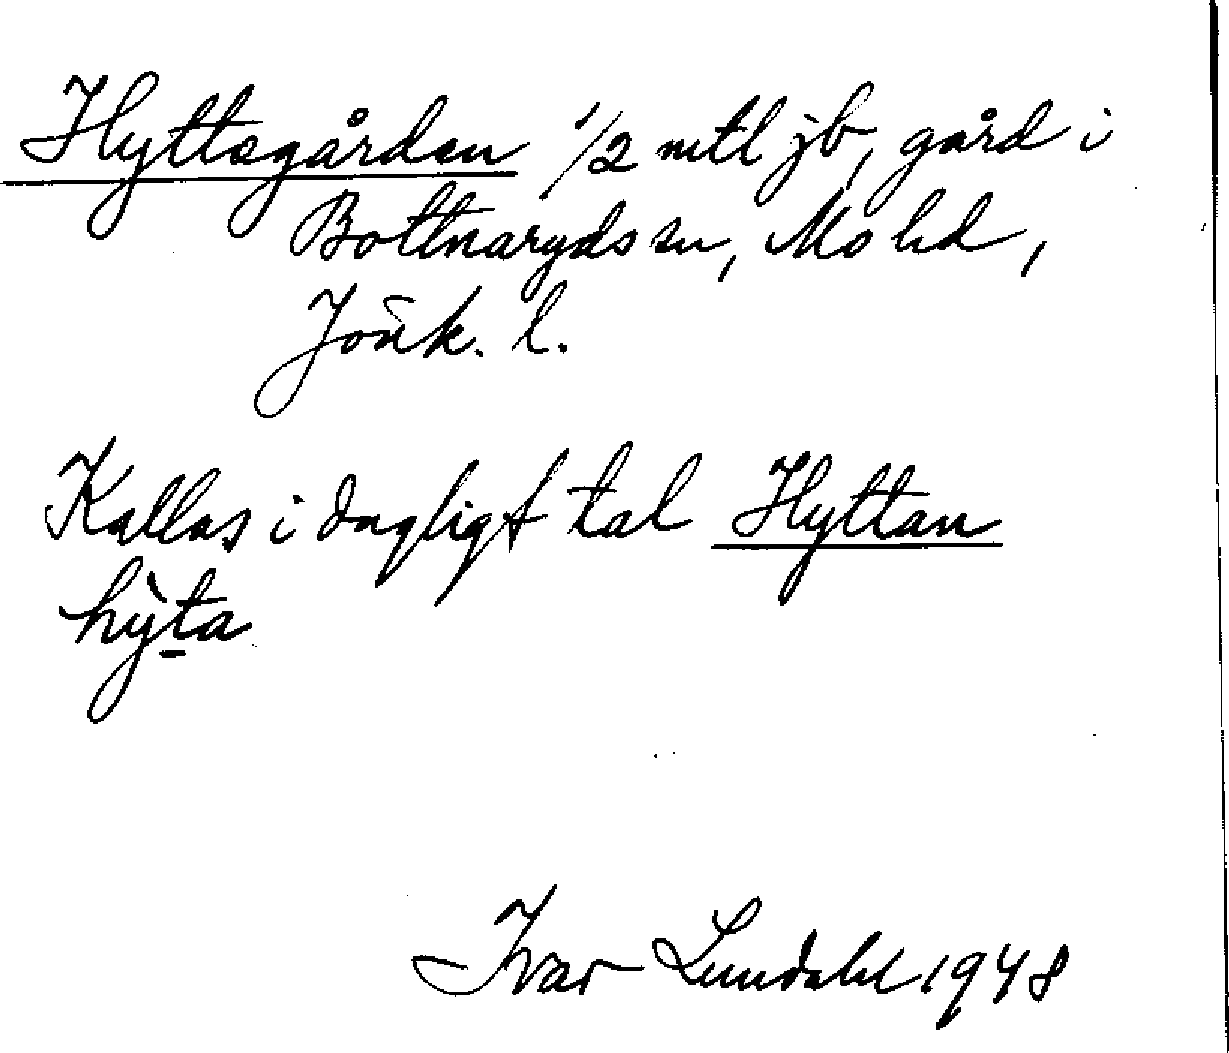 Hyttegården 1/2 mtl jb, gård i
Bottnaryds sn, Mo hd,
Jönk. l.
Kallas i dagligt tal Hyttan
hỳta
Ivar Lundahl 1948